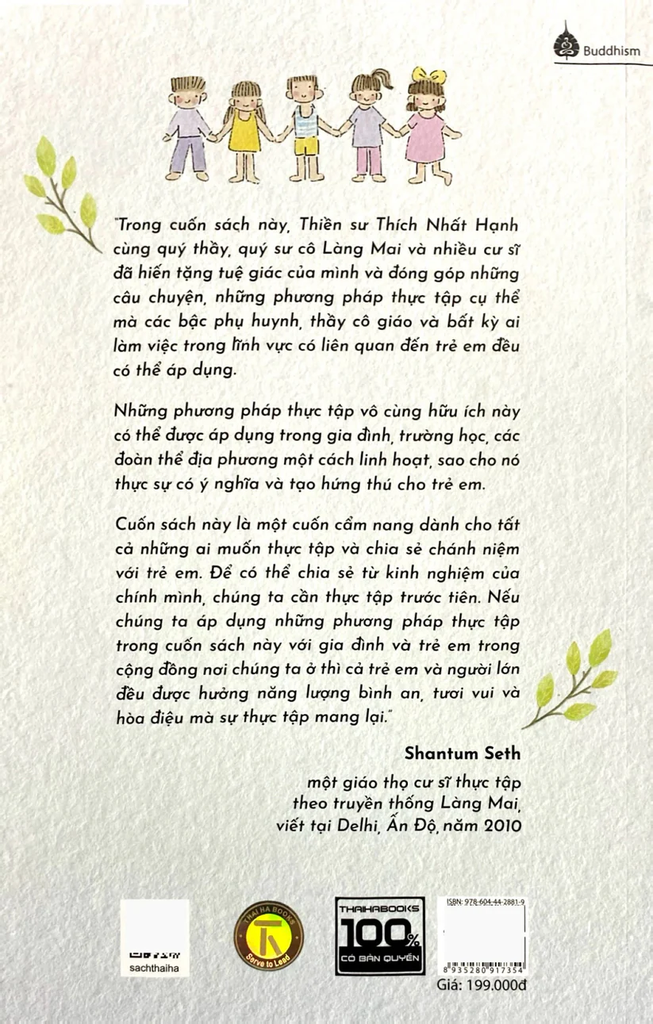 Buddhism
"Trong cuốn sách này, Thiền sư Thích Nhất Hạnh
cùng quý thầy, quý sư cô Làng Mai và nhiều cư sĩ
đã hiến tặng tuệ giác của mình và đóng góp những
câu chuyện, những phương pháp thực tập cụ thể
mà các bậc phụ huynh, thầy cô giáo và bất kỳ ai
làm việc trong lĩnh vực có liên quan đến trẻ em đều
có thể áp dụng.
Những phương pháp thực tập vô cùng hữu ích này
có thể được áp dụng trong gia đình, trường học, các
đoàn thể địa phương một cách linh hoạt, sao cho nó
thực sự có ý nghĩa và tạo hứng thú cho trẻ em.
Cuốn sách này là một cuốn cẩm nang dành cho tất
cả những ai muốn thực tập và chia sẻ chánh niệm
với trẻ em. Để có thể chia sẻ từ kinh nghiệm của
chính mình, chúng ta cần thực tập trước tiên. Nếu
chúng ta áp dụng những phương pháp thực tập
trong cuốn sách này với gia đình và trẻ em trong
cộng đồng nơi chúng ta ở thì cả trẻ em và người lớn
đều được hưởng năng lượng bình an, tươi vui và
hòa điệu mà sự thực tập mang lại."
Shantum Seth
một giáo thọ cư sĩ thực tập
theo truyền thống Làng Mai,
viết tại Delhi, Ấn Độ, năm 2010
sachthaiha
THAI HA BOOKS
Serve to Lead
THAIHABOOKS
100%
CÓ BẢN QUYỀN
ISBN: 978-604-44-2881-9
8 935280 917354
Giá: 199.000đ